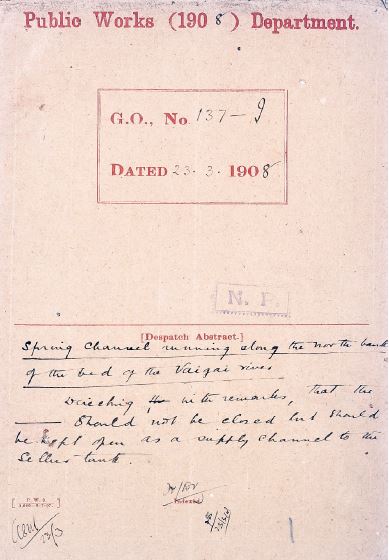 Public Works (1908) Department.
G.O., No 137-I
DATED 23.3.1908
N. P.
[Despatch Abstract.]
Spring Channel running along the north bank
of the bed of the Vaigai river
Directing with remarks, that the
—— Should not be closed but should
be kept open as a supply channel to the
Sellur tank.
[ P. W. 9. ]
Indexed
23/3